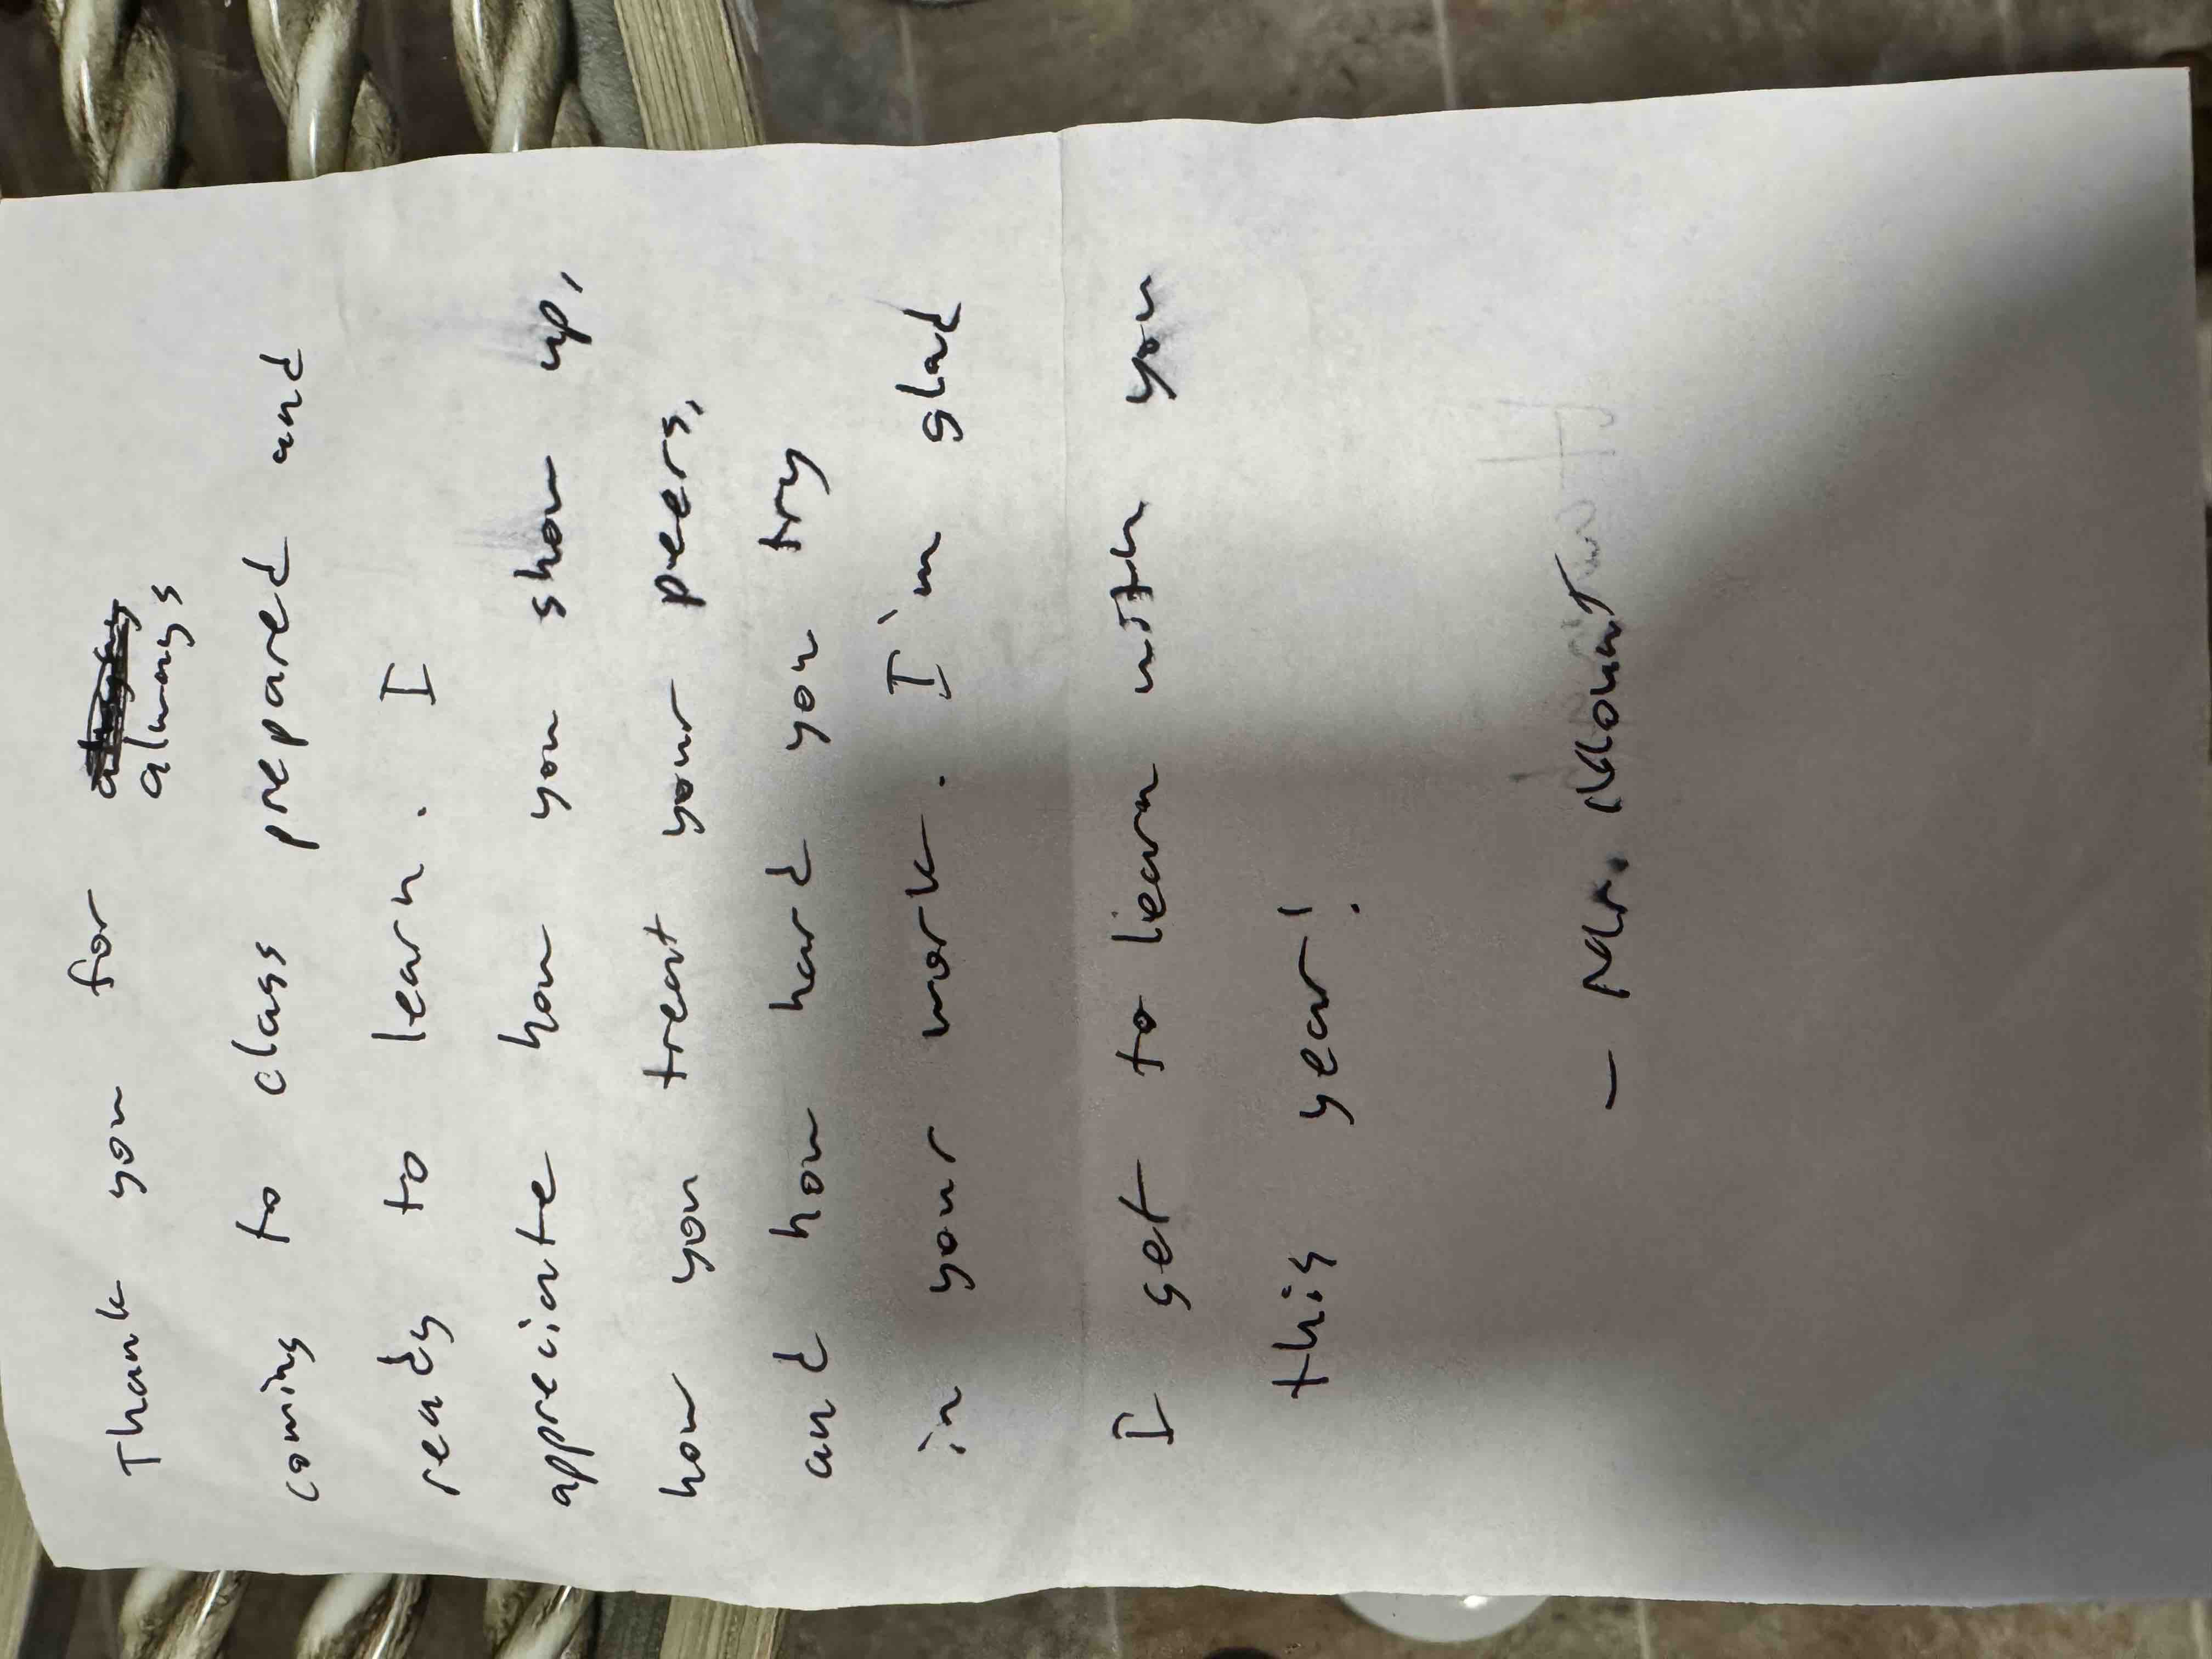 Thank you for always
coming to class prepared and
ready to learn. I
appreciate how you show up,
how you treat your peers,
and how hard you try
in your work. I'm glad
I get to learn with you
this year!
— Mr.